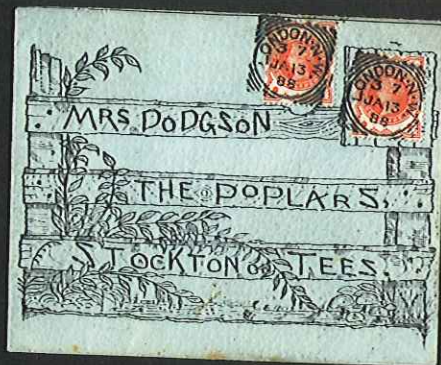 LONDON·N.W.
3 7
JA 13
88
LONDON·N.W.
3 7
JA 13
88
MRS DODGSON
THE POPLARS,
STOCKTON ON TEES.